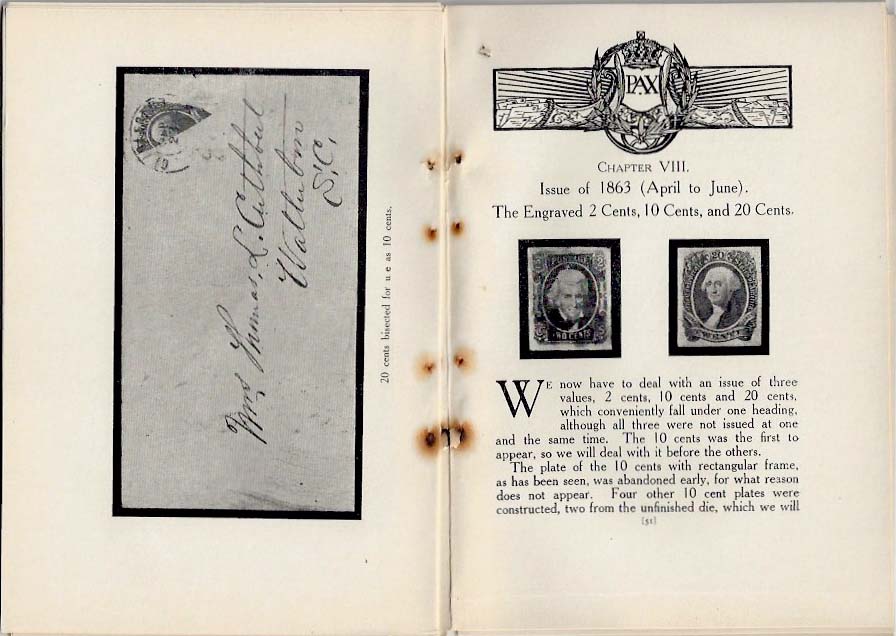 Mrs Thomas. L. Cuthbert
Walterboro
S.C.
20 cents bisected for u e as 10 cents.
PAX
CHAPTER VIII.
Issue of 1863 (April to June).
The Engraved 2 Cents, 10 Cents, and 20 Cents.
TWO CENTS
20
WE now have to deal with an issue of three
values, 2 cents, 10 cents and 20 cents,
which conveniently fall under one heading,
although all three were not issued at one
and the same time. The 10 cents was the first to
appear, so we will deal with it before the others.
The plate of the 10 cents with rectangular frame,
as has been seen, was abandoned early, for what reason
does not appear. Four other 10 cent plates were
constructed, two from the unfinished die, which we will
[51]